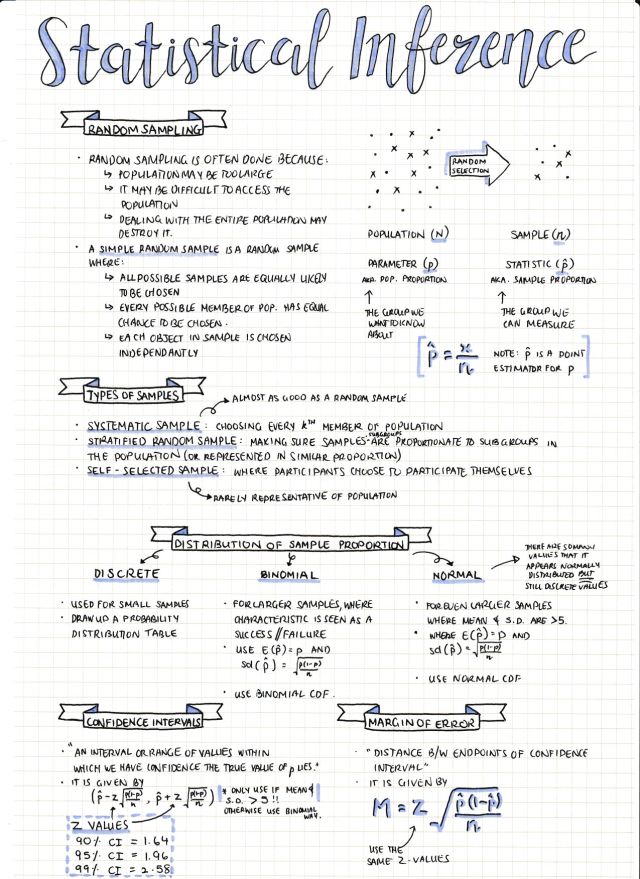 Statistical Inference
RANDOM SAMPLING
· RANDOM SAMPLING IS OFTEN DONE BECAUSE:
↳ POPULATION MAY BE TOO LARGE
↳ IT MAY BE DIFFICULT TO ACCESS THE
POPULATION
↳ DEALING WITH THE ENTIRE POPULATION MAY
DESTROY IT.
· A SIMPLE RANDOM SAMPLE IS A RANDOM SAMPLE
WHERE:
↳ ALL POSSIBLE SAMPLES ARE EQUALLY LIKELY
TO BE CHOSEN
↳ EVERY POSSIBLE MEMBER OF POP. HAS EQUAL
CHANCE TO BE CHOSEN.
↳ EACH OBJECT IN SAMPLE IS CHOSEN
INDEPENDANTLY
RANDOM
SELECTION
POPULATION (N)
SAMPLE (n)
PARAMETER (p)
AKA. POP. PROPORTION
STATISTIC (p̂)
AKA. SAMPLE PROPORTION
↑
THE GROUP WE
WANT TO KNOW
ABOUT
↑
THE GROUP WE
CAN MEASURE
[p̂ = x/n NOTE: p̂ IS A POINT
ESTIMATOR FOR p]
TYPES OF SAMPLES
ALMOST AS GOOD AS A RANDOM SAMPLE
· SYSTEMATIC SAMPLE: CHOOSING EVERY kᵀᴴ MEMBER OF POPULATION
· STRATIFIED RANDOM SAMPLE: MAKING SURE SAMPLES SUBGROUPS ARE PROPORTIONATE TO SUBGROUPS IN
THE POPULATION (OR REPRESENTED IN SIMILAR PROPORTION)
· SELF-SELECTED SAMPLE: WHERE PARTICIPANTS CHOOSE TO PARTICIPATE THEMSELVES
RARELY REPRESENTATIVE OF POPULATION
DISTRIBUTION OF SAMPLE PROPORTION
DISCRETE
· USED FOR SMALL SAMPLES
· DRAW UP A PROBABILITY
DISTRIBUTION TABLE
BINOMIAL
· FOR LARGER SAMPLES, WHERE
CHARACTERISTIC IS SEEN AS A
SUCCESS//FAILURE
· USE E(p̂)=p AND
sd(p̂) = √(p(1-p)/n)
· USE BINOMIAL CDF.
NORMAL
THERE ARE SO MANY
VALUES THAT IT
APPEARS NORMALLY
DISTRIBUTED BUT
STILL DISCRETE VALUES
· FOR EVEN LARGER SAMPLES
WHERE MEAN & S.D. ARE >5.
· WHERE E(p̂)=p AND
sd(p̂)=√(p(1-p)/n)
· USE NORMAL CDF
CONFIDENCE INTERVALS
· "AN INTERVAL OR RANGE OF VALUES WITHIN
WHICH WE HAVE CONFIDENCE THE TRUE VALUE OF p LIES."
· IT IS GIVEN BY
(p̂-z√(p(1-p)/n), p̂+z√(p(1-p)/n))
* ONLY USE IF MEAN &
S.D. >5!!
OTHERWISE USE BINOMIAL
WAY.
Z VALUES
90% CI = 1.64
95% CI = 1.96
99% CI = 2.58
MARGIN OF ERROR
· "DISTANCE B/W ENDPOINTS OF CONFIDENCE
INTERVAL"
· IT IS GIVEN BY
M = Z √(p̂(1-p̂)/n)
USE THE
SAME Z-VALUES